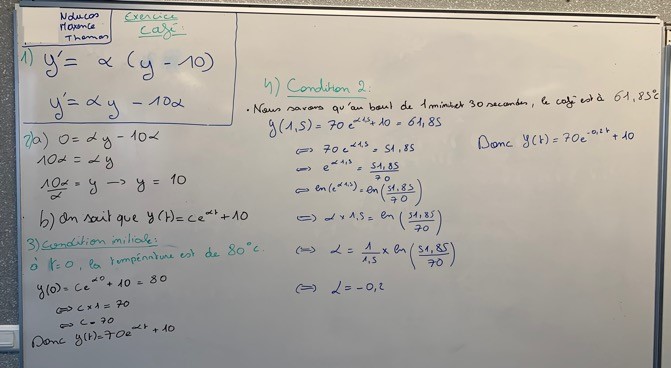 Nducos
Maxence
Thomas
Exercice
Café:
1) y' = α (y - 10)
y' = αy - 10α
2)a) 0 = αy - 10α
10α = αy
10α/α = y → y = 10
b) On sait que y(t) = ce^αt + 10
3) Condition initiale:
à t=0, la température est de 80°c.
y(0) = Ce^α0 + 10 = 80
⇔ C×1 = 70
⇔ C = 70
Donc y(t) = 70e^αt + 10
4) Condition 2:
. Nous savons qu'au bout de 1 min et 30 secondes, le café est à 61,85°C
y(1,5) = 70e^α1,5 + 10 = 61,85
⇔ 70e^α1,5 = 51,85
⇔ e^α1,5 = 51,85/70
⇔ ln(e^α1,5) = ln(51,85/70)
⇔ α × 1,5 = ln(51,85/70)
⇔ α = 1/1,5 × ln(51,85/70)
⇔ α = -0,2
Donc y(t) = 70e^-0,2t + 10